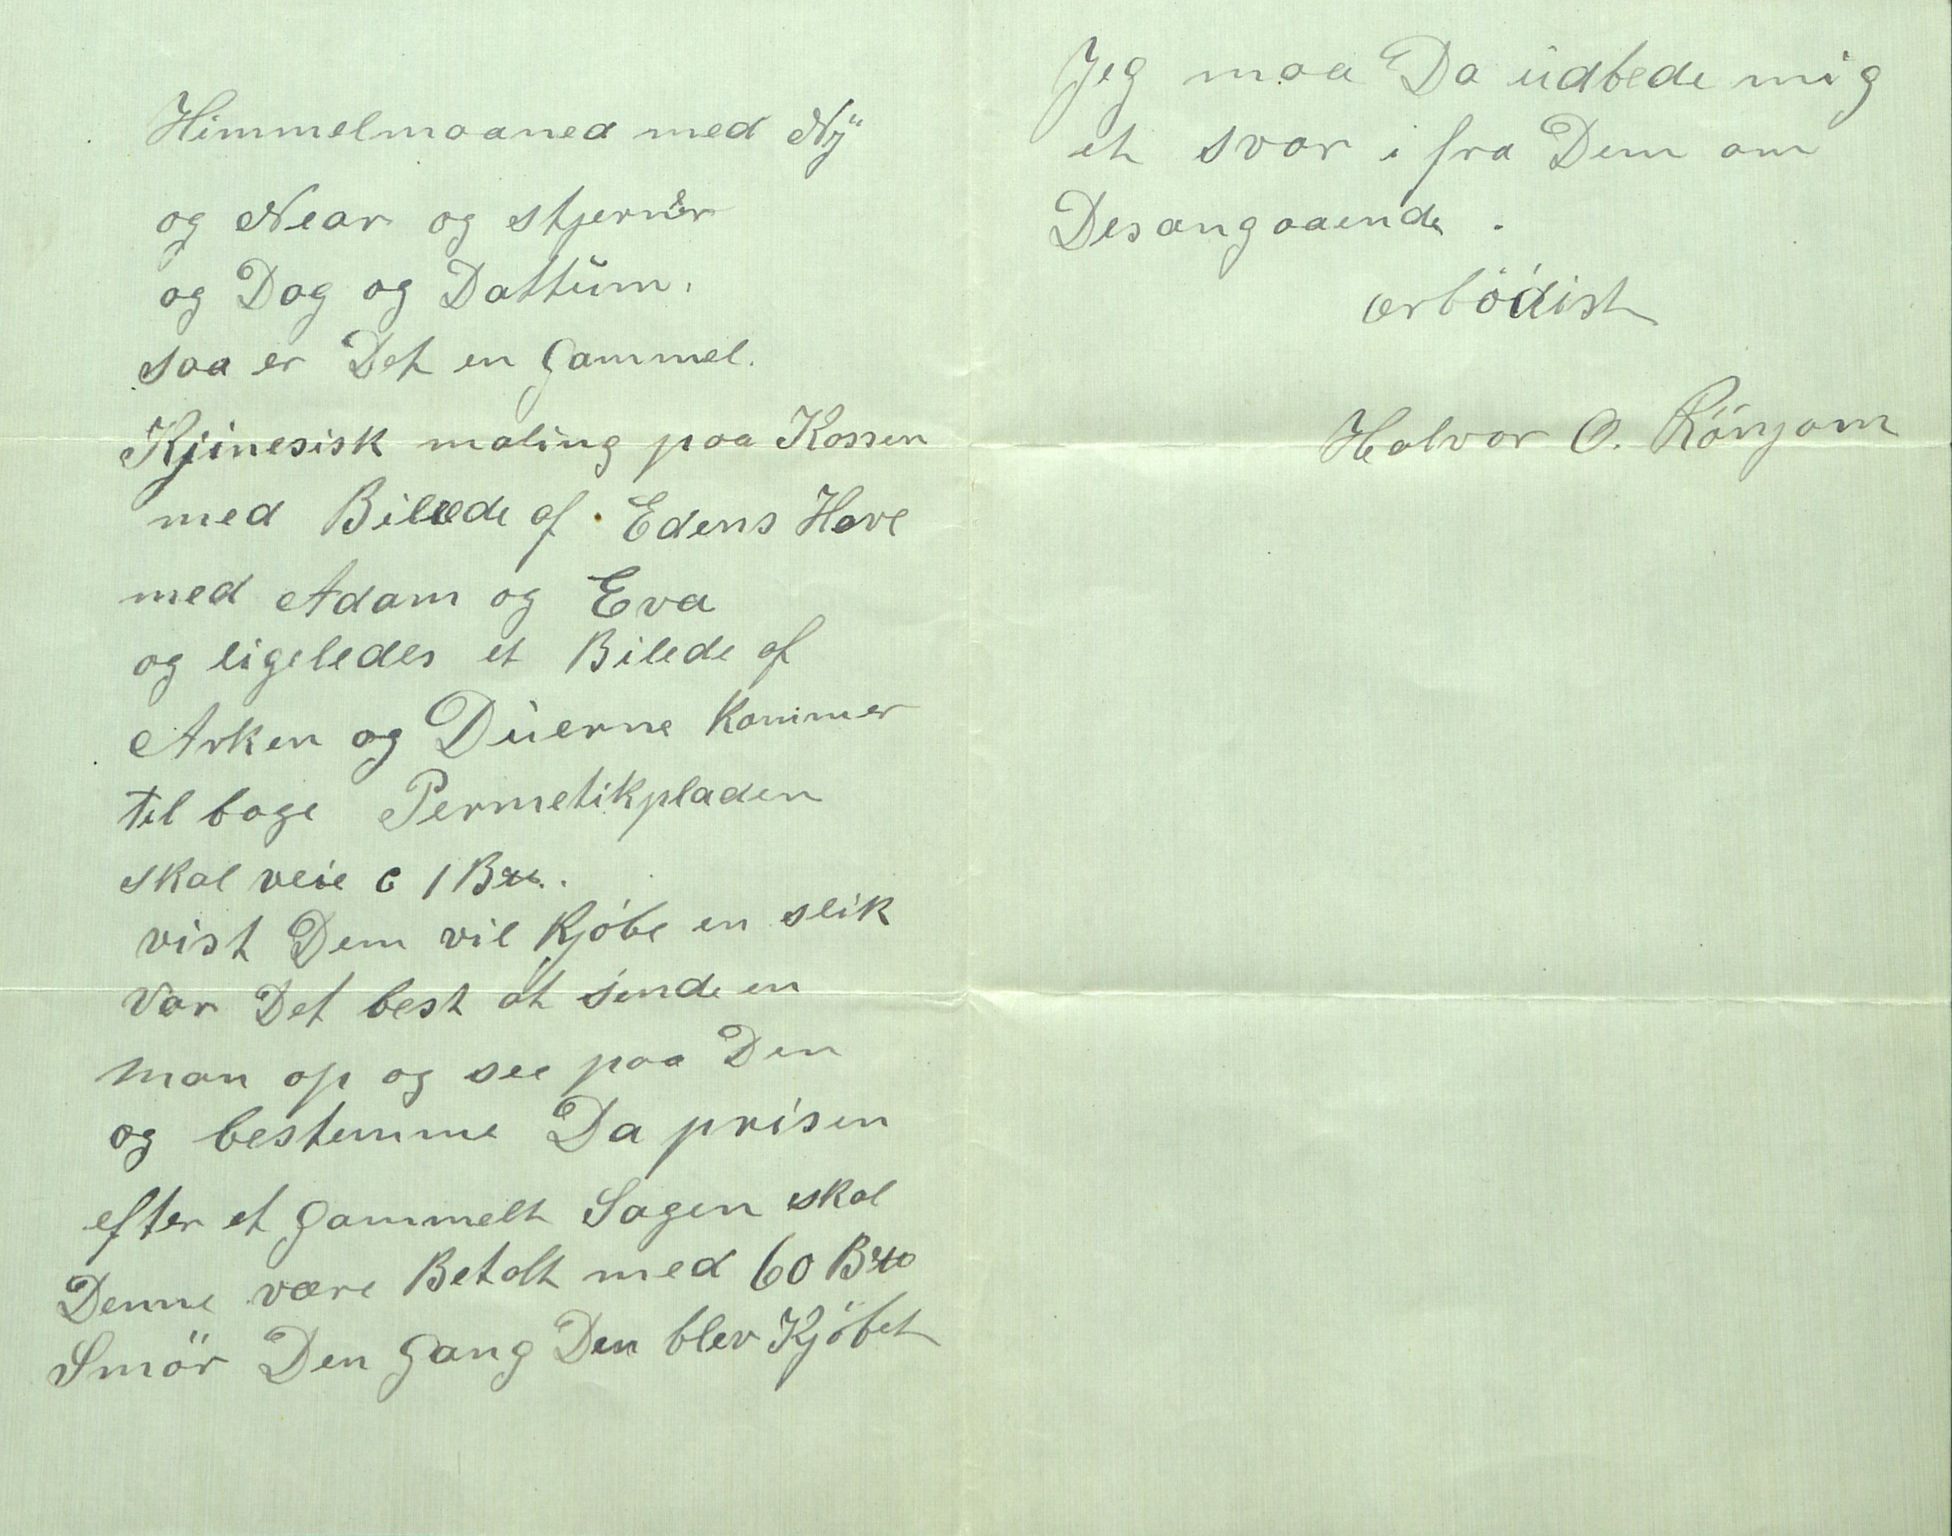 Himmelmaaned med Ny
og Near og stjerner
og Dag og Dattum.
saa er Det en gammel.
Kjinesisk maling paa Kassen
med Bilede af Edens Have
med Adam og Eva
og ligeledes et Bilede af
Arken og Duerne kommer
til bage Permetikpladen
skal veie 6 1
vist Dem vil kjöbe en slik
var Det best at sende en
man op og see paa Den
og bestemme Da prisen
efter et gammelt Sagen skal
Denne være Betalt med 60
Smör Den gang Den blev Kjöbet
Jeg maa Da udbede mig
et svar i fra Dem om
Desangaaende.
ærbödist
Halvor O. Rönjom